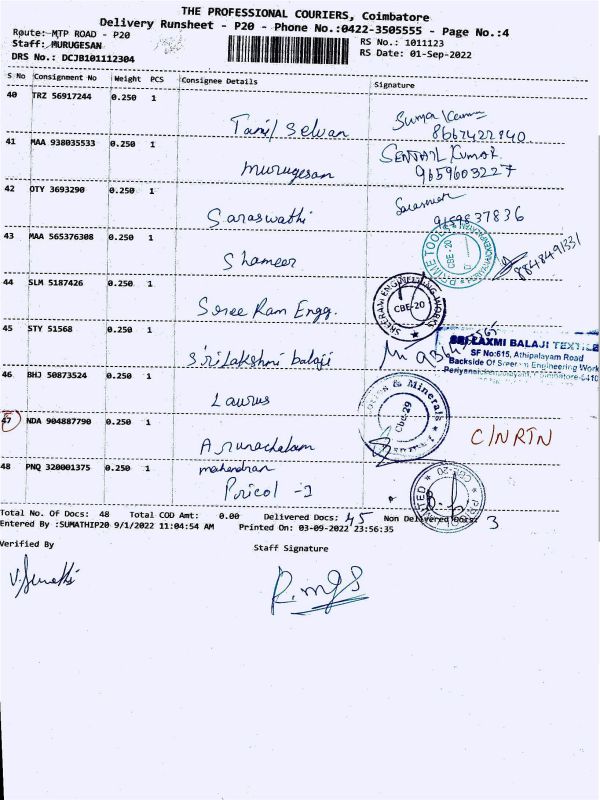 THE PROFESSIONAL COURIERS, Coimbatore
Delivery Runsheet - P20 - Phone No.:0422-3505555 - Page No.:4
Route: MTP ROAD - P20
Staff: MURUGESAN
DRS No.: DCJB101112304
RS No.: 1011123
RS Date: 01-Sep-2022
S No Consignment No Weight PCS Consignee Details Signature
40 TRZ 56917244 0.250 1
Tamil Selvan
41 MAA 938035533 0.250 1
SENTHIL Kumar
Murugesan 9659603227
42 OTY 3693290 0.250 1
Saraswathi 9659837836
43 MAA 565376308 0.250 1
Shameer
CBE-20
44 SLM 5187426 0.250 1
Sree Ram Engg.
SREERAM ENGINEERING WORKS
CBE-20
45 STY 51568 0.250 1
Sri Lakshmi balaji
SRI LAXMI BALAJI TEXTILE
SF No:615, Athipalayam Road
Backside Of Sreeram Engineering Work
46 BHJ 50873524 0.250 1
Laurus
& Minerals
Cbe-29
47 NDA 904887790 0.250 1
Arunachalam
C/N RTN
48 PNQ 320001375 0.250 1
mahendran
Pricol -1
Total No. Of Docs: 48 Total COD Amt: 0.00 Delivered Docs: 45 Non Delivered Docs: 3
Entered By :SUMATHIP20 9/1/2022 11:04:54 AM Printed On: 03-09-2022 23:56:35
Verified By
Staff Signature